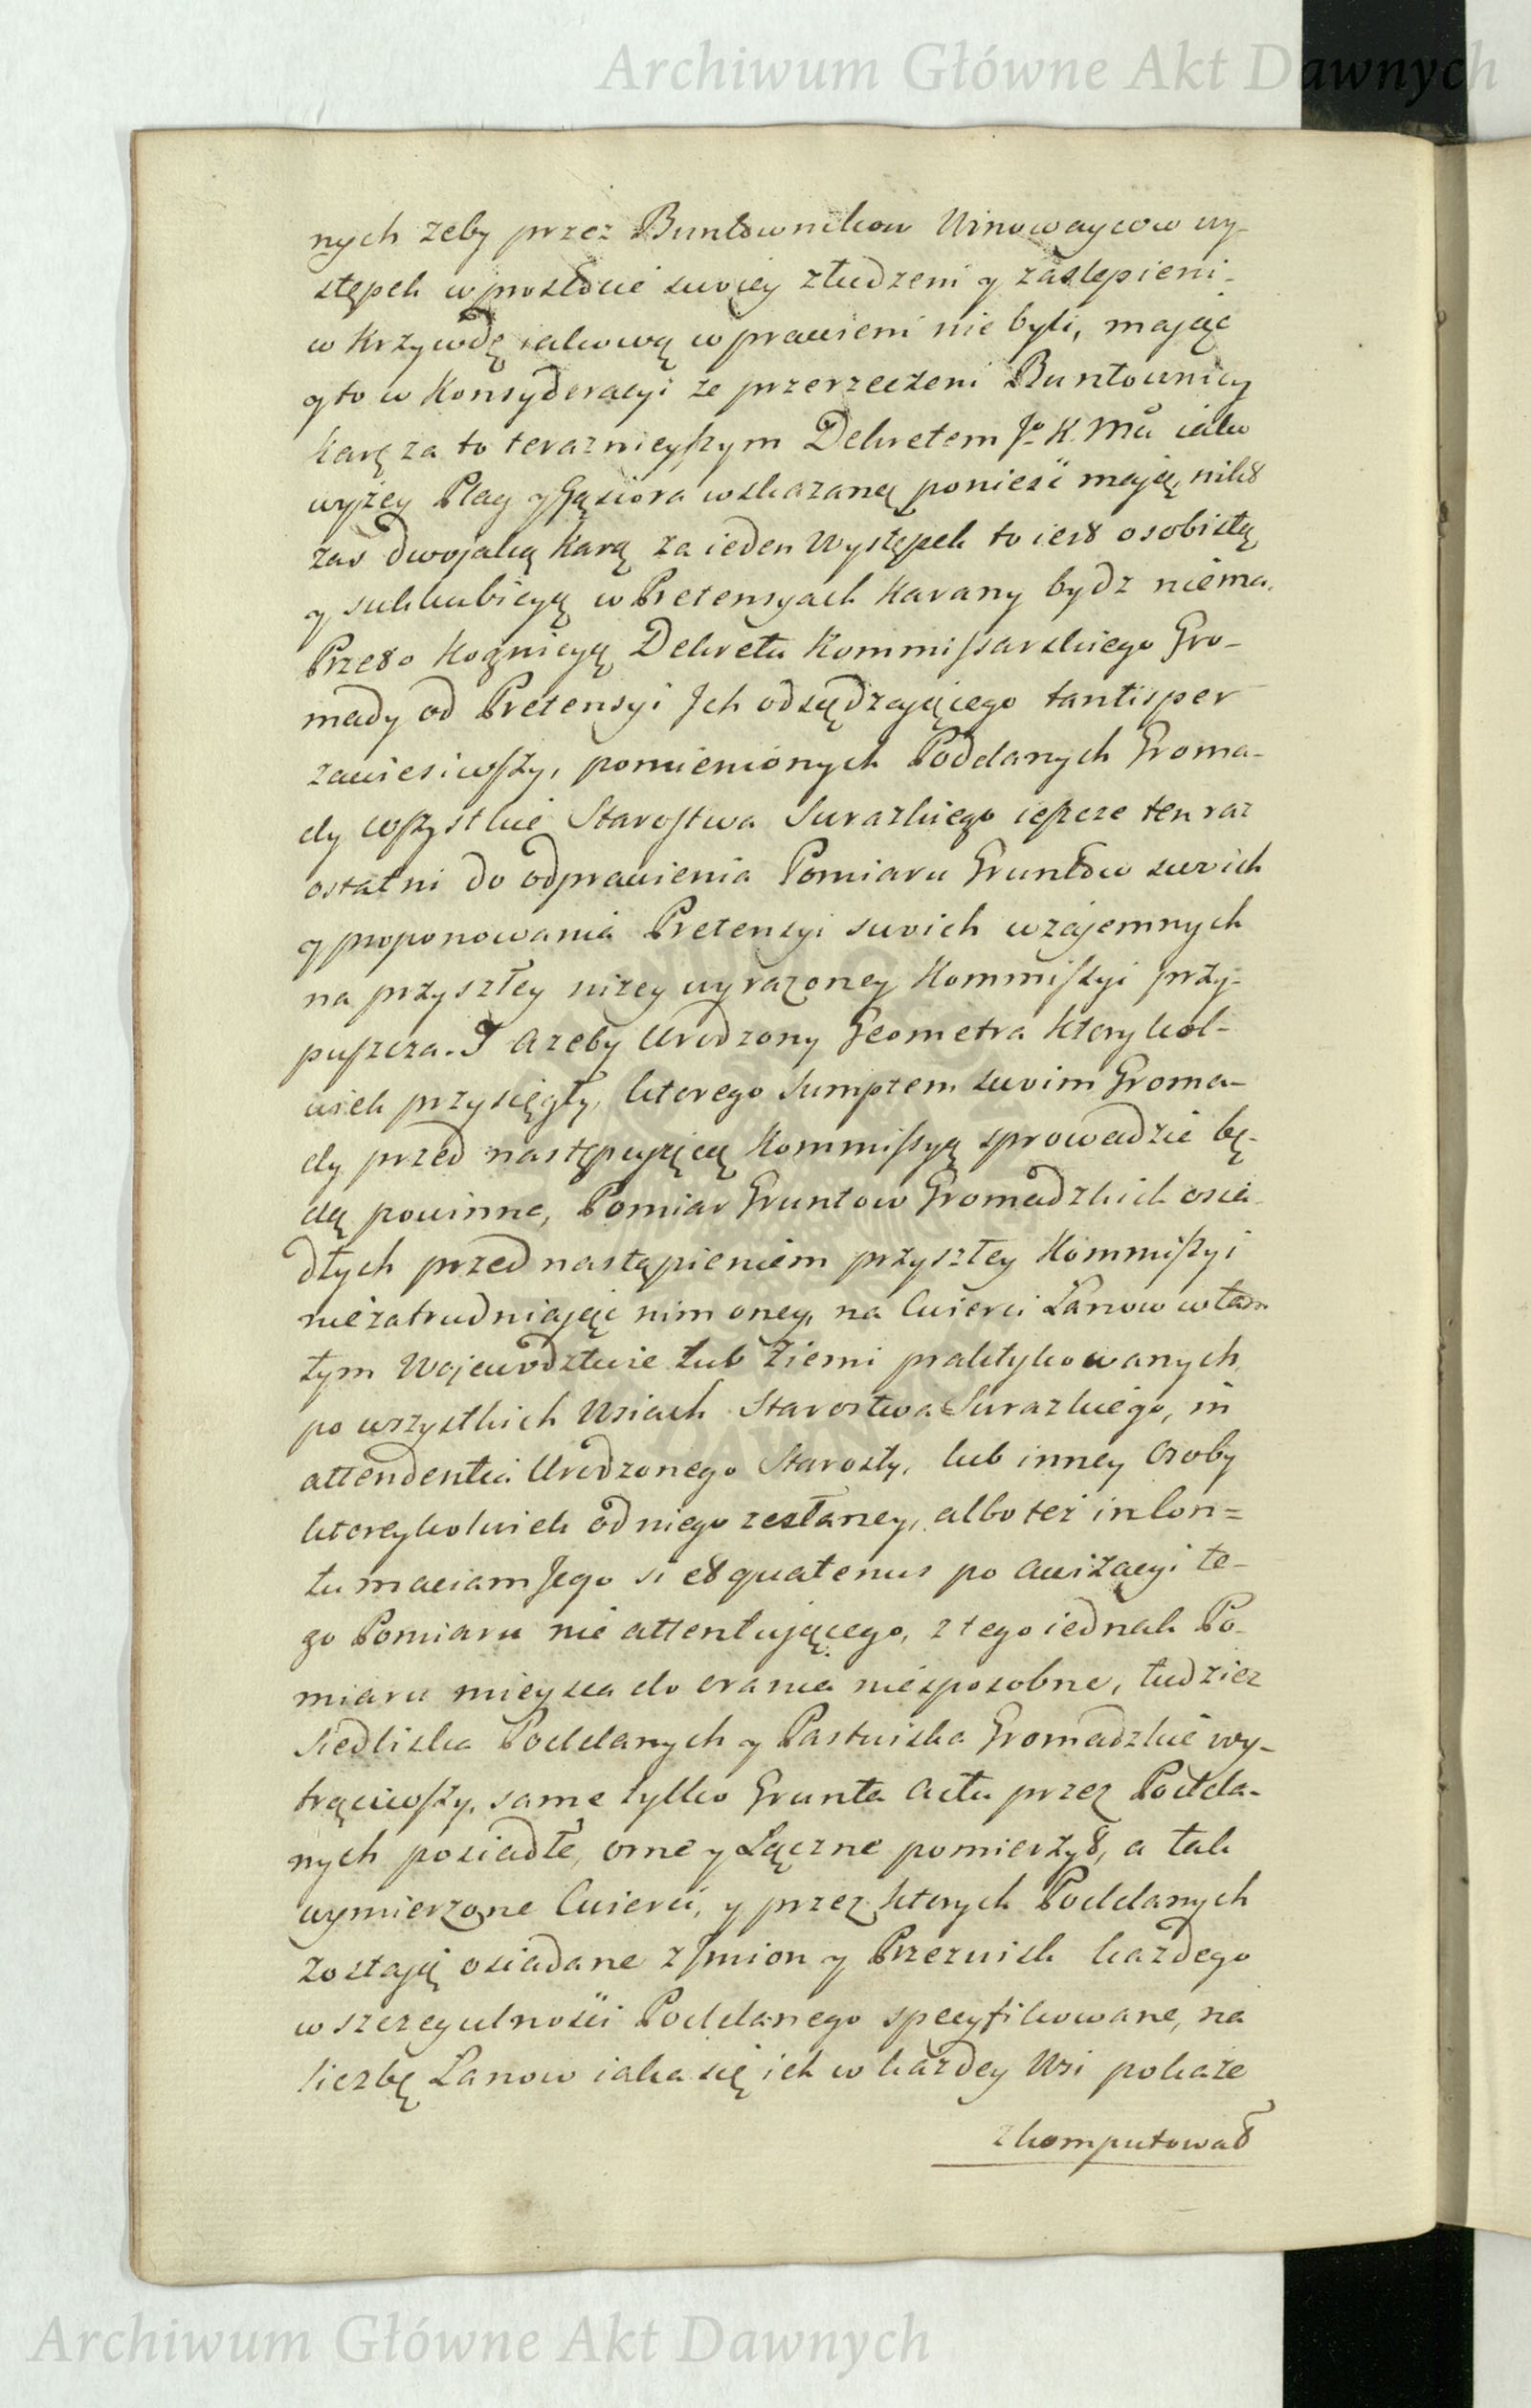 Archiwum Główne Akt Dawnych
nych zeby przez Buntownikow Winowaycow wy-
stępek w prostocie swoiey złudzeni y zaslepieni
w krzywdę iakową wprawieni nie byli, maiąc
y to w Konsyderacyi że przerzeczeni Buntownicy
karę za to teraznieyszym Dekretem Jo K. Mci iako
wyżey Plag y Gąsiora wskazaną ponieść maią, nikt
zas dwojaką karą za ieden Występek to iest osobistą
y sukkubicyą w Pretensyach karany bydz niema.
Przeto Kognicyą Dekretu Kommissarskiego Gro-
mady od Pretensyi Jch odsądzaiącego tantisper
zawiesiwszy, pomienionych Poddanych Groma-
dy wszystkie Starostwa Surazkiego ieszcze ten raz
ostatni do odprawienia Pomiaru Gruntow swoich
y proponowania Pretensyi swoich wzajemnych
na przyszłey niżey wyrazoney Kommissyi przy-
puszcza. J azeby Urodzony Geometra ktorykol-
wiek przysięgły, ktorego Sumptem swoim Groma-
dy przed następuiącą Kommissyą sprowadzic bę-
dą powinne, Pomiar Gruntow Gromadzkich osia
dłych przed nastąpieniem przyszłey Kommissyi
niezatrudniaiąc nim oney, na Cwierci Łanow w tam
tym Wojewodztwie lub Ziemi praktykowanych,
po wszystkich Wsiach Starostwa Surazkiego, in
attendentia Urodzonego Starosty, lub inney Osoby
ktoreykolwiek od niego zesłaney, albo tez in Con=
tumaciam Jego si et quatenus po awizacyi te-
go Pomiaru nie attentuiącego, z tego iednak Po-
miaru mieysca do orania niesposobne, tudziez
Siedliska Poddanych y Pastwiska Gromadzkie wy-
trąciwszy, same tylko Grunta actu przez Podda-
nych posiadłe, orne y Łączne pomierzył, a tak
wymierzone Cwierci, y przez ktorych Poddanych
zostaią osiadane z Jmion y Przezwisk kazdego
w szczegulności Poddanego specyfikowane, na
liczbę Łanow iaka się ich w kazdey Wsi pokaże
zkomputował
Archiwum Główne Akt Dawnych